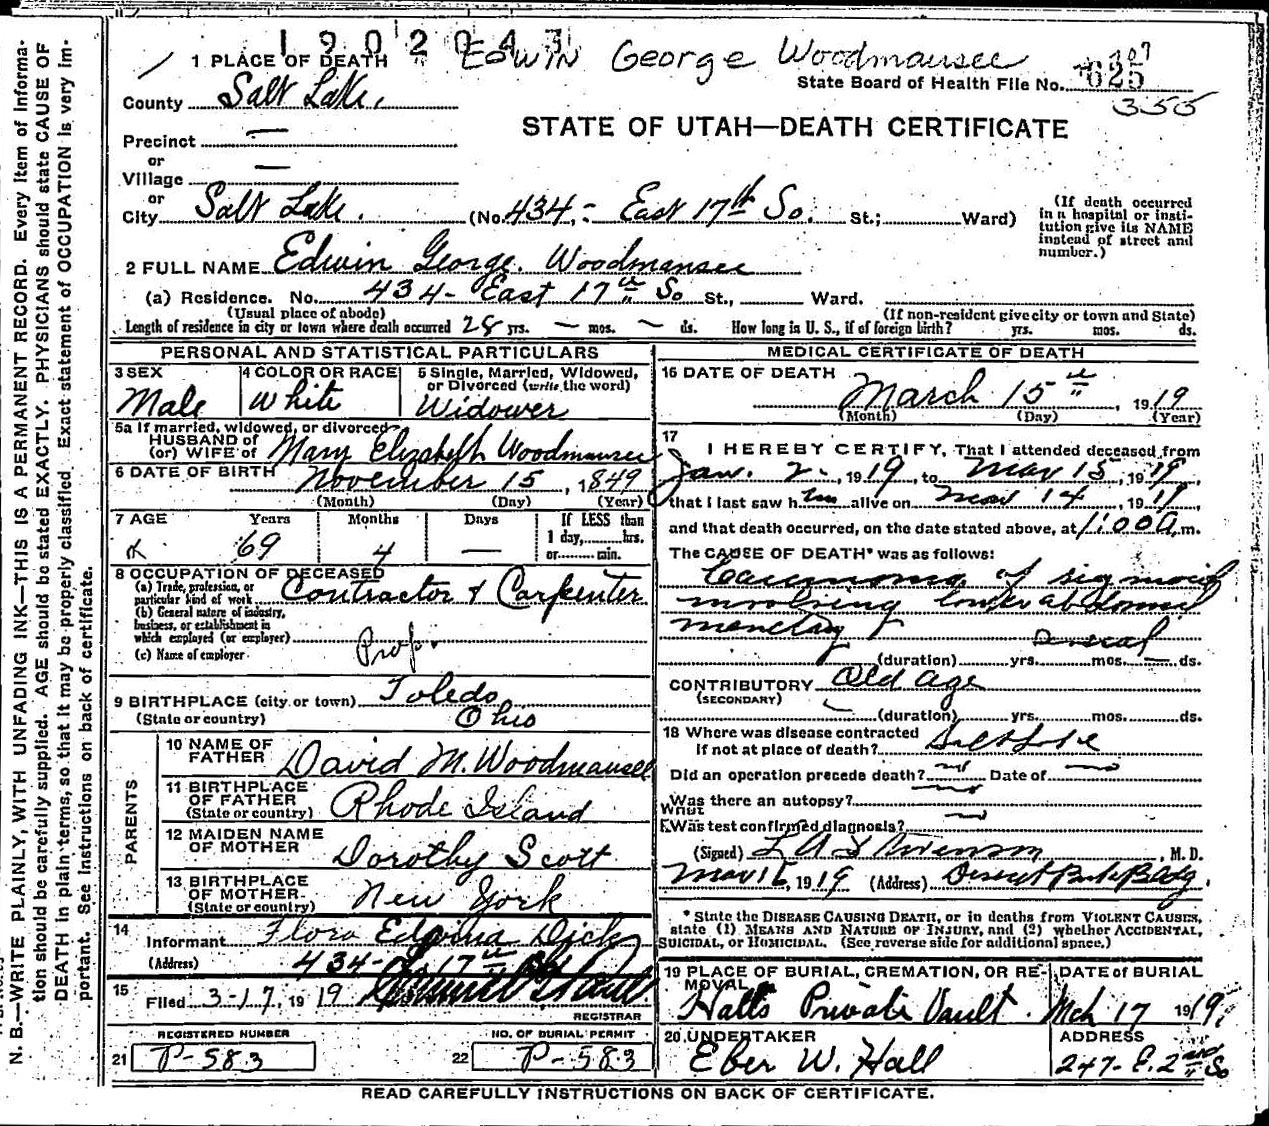 1902043
EDWIN George Woodmansee
1 PLACE OF DEATH
State Board of Health File No. 625
307
355
County Salt Lake.
STATE OF UTAH—DEATH CERTIFICATE
Precinct —
or
Village —
or
City Salt Lake. (No. 434,- East 17th So. St.; Ward)
(If death occurred
in a hospital or insti-
tution give its NAME
instead of street and
number.)
2 FULL NAME Edwin George. Woodmansee
(a) Residence. No. 434- East 17th So St., Ward.
(Usual place of abode) (If non-resident give city or town and State)
Length of residence in city or town where death occurred 28 yrs. — mos. — ds. How long in U. S., if of foreign birth? yrs. mos. ds.
PERSONAL AND STATISTICAL PARTICULARS
3 SEX 4 COLOR OR RACE 5 Single, Married, Widowed,
or Divorced (write the word)
Male White Widower
5a If married, widowed, or divorced
HUSBAND of
(or) WIFE of Mary Elizabeth Woodmansee
6 DATE OF BIRTH November 15, 1849
(Month) (Day) (Year)
7 AGE Years Months Days If LESS than
1 day, hrs.
or min.
69 4 —
8 OCCUPATION OF DECEASED
(a) Trade, profession, or
particular kind of work Contractor & Carpenter
(b) General nature of industry,
business, or establishment in
which employed (or employer)
Prop.
(c) Name of employer
9 BIRTHPLACE (city or town) Toledo
(State or country) Ohio
PARENTS
10 NAME OF
FATHER David M. Woodmansee
11 BIRTHPLACE
OF FATHER
(State or country) Rhode Island
12 MAIDEN NAME
OF MOTHER Dorothy Scott
13 BIRTHPLACE
OF MOTHER
(State or country) New York
14
Informant Flora Edwina Dick
(Address) 434- 17th
15
Filed 3-17, 1919
REGISTRAR
REGISTERED NUMBER NO. OF BURIAL PERMIT
21 P-583 22 P-583
MEDICAL CERTIFICATE OF DEATH
16 DATE OF DEATH
March 15th, 1919
(Month) (Day) (Year)
17
I HEREBY CERTIFY, That I attended deceased from
Jan. 2-, 1919, to Mar 15, 1919,
that I last saw him alive on Mar 14, 1919,
and that death occurred, on the date stated above, at 11:00 A. m.
The CAUSE OF DEATH* was as follows:
Carcinoma of sigmoid
involving lower abdominal
several
(duration) yrs. mos. — ds.
CONTRIBUTORY Old age
(SECONDARY)
(duration) yrs. mos. ds.
18 Where was disease contracted
if not at place of death? Salt Lake
Did an operation precede death? no Date of
Was there an autopsy? no
What
Was test confirmed diagnosis?
(Signed) Swenson, M. D.
Mar 16, 1919 (Address) Deseret Bank Bldg.
* State the DISEASE CAUSING DEATH, or in deaths from VIOLENT CAUSES,
state (1) MEANS AND NATURE OF INJURY, and (2) whether ACCIDENTAL,
SUICIDAL, or HOMICIDAL. (See reverse side for additional space.)
19 PLACE OF BURIAL, CREMATION, OR RE-
MOVAL DATE of BURIAL
Halls Private Vault. Mch 17 1919.
20 UNDERTAKER ADDRESS
Eber W. Hall 247- E. 2nd So
READ CAREFULLY INSTRUCTIONS ON BACK OF CERTIFICATE.
N. B.—WRITE PLAINLY, WITH UNFADING INK—THIS IS A PERMANENT RECORD. Every item of informa-
tion should be carefully supplied. AGE should be stated EXACTLY. PHYSICIANS should state CAUSE OF
DEATH in plain terms, so that it may be properly classified. Exact statement of OCCUPATION is very im-
portant. See instructions on back of certificate.